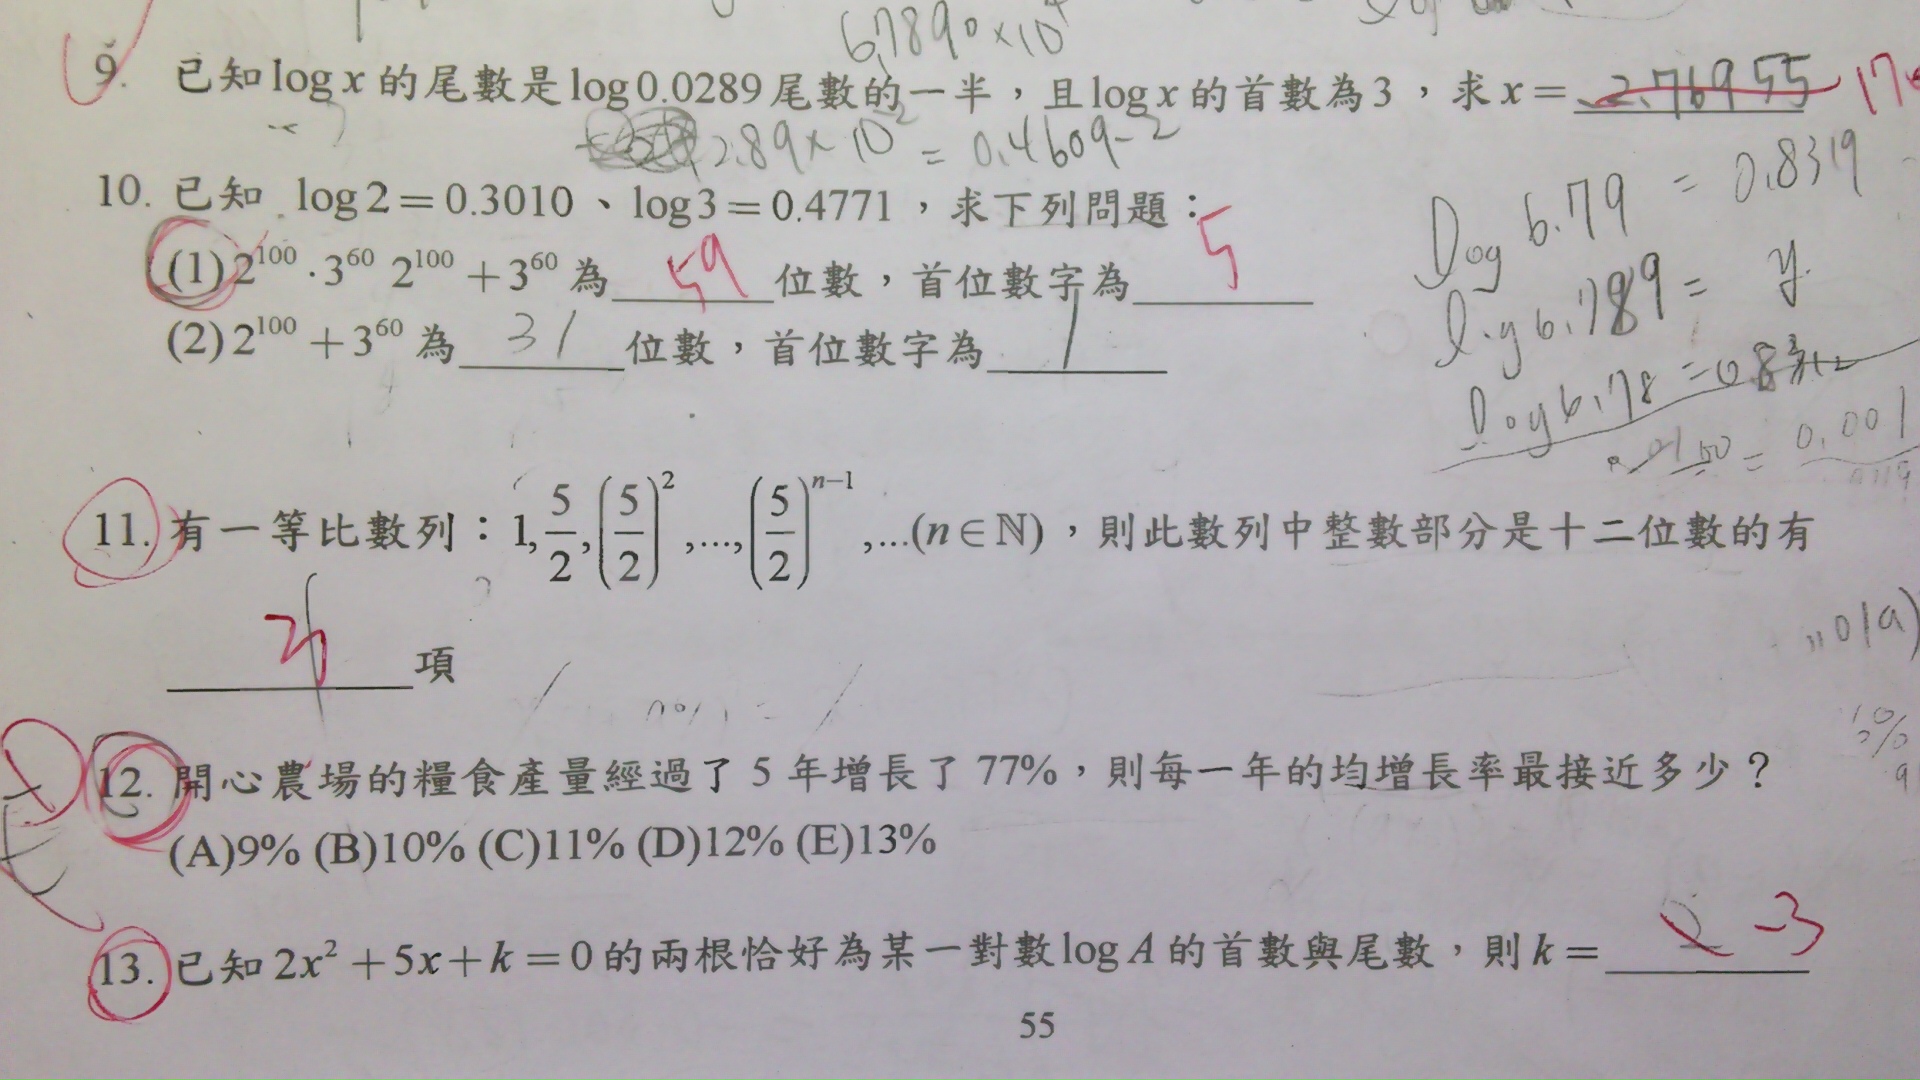 6.7890×10⁴
9. 已知 log x 的尾數是 log 0.0289 尾數的一半，且 log x 的首數為 3 ，求 x = 2.76955 17
2.89×10⁻² = 0.4609-2
10. 已知 log 2 = 0.3010 、 log 3 = 0.4771 ，求下列問題：
log 6.79 = 0.8319
(1) 2¹⁰⁰ · 3⁶⁰ 2¹⁰⁰ + 3⁶⁰ 為 59 位數，首位數字為 5
log 6.789 = y
(2) 2¹⁰⁰ + 3⁶⁰ 為 31 位數，首位數字為 1
log 6.78 = 0.83
= 0.001
11. 有一等比數列：1, 5/2, (5/2)², ..., (5/2)ⁿ⁻¹, ...(n ∈ ℕ) ，則此數列中整數部分是十二位數的有
項
12. 開心農場的糧食產量經過了 5 年增長了 77%，則每一年的均增長率最接近多少？
(A)9% (B)10% (C)11% (D)12% (E)13%
13. 已知 2x² + 5x + k = 0 的兩根恰好為某一對數 log A 的首數與尾數，則 k = -3
55